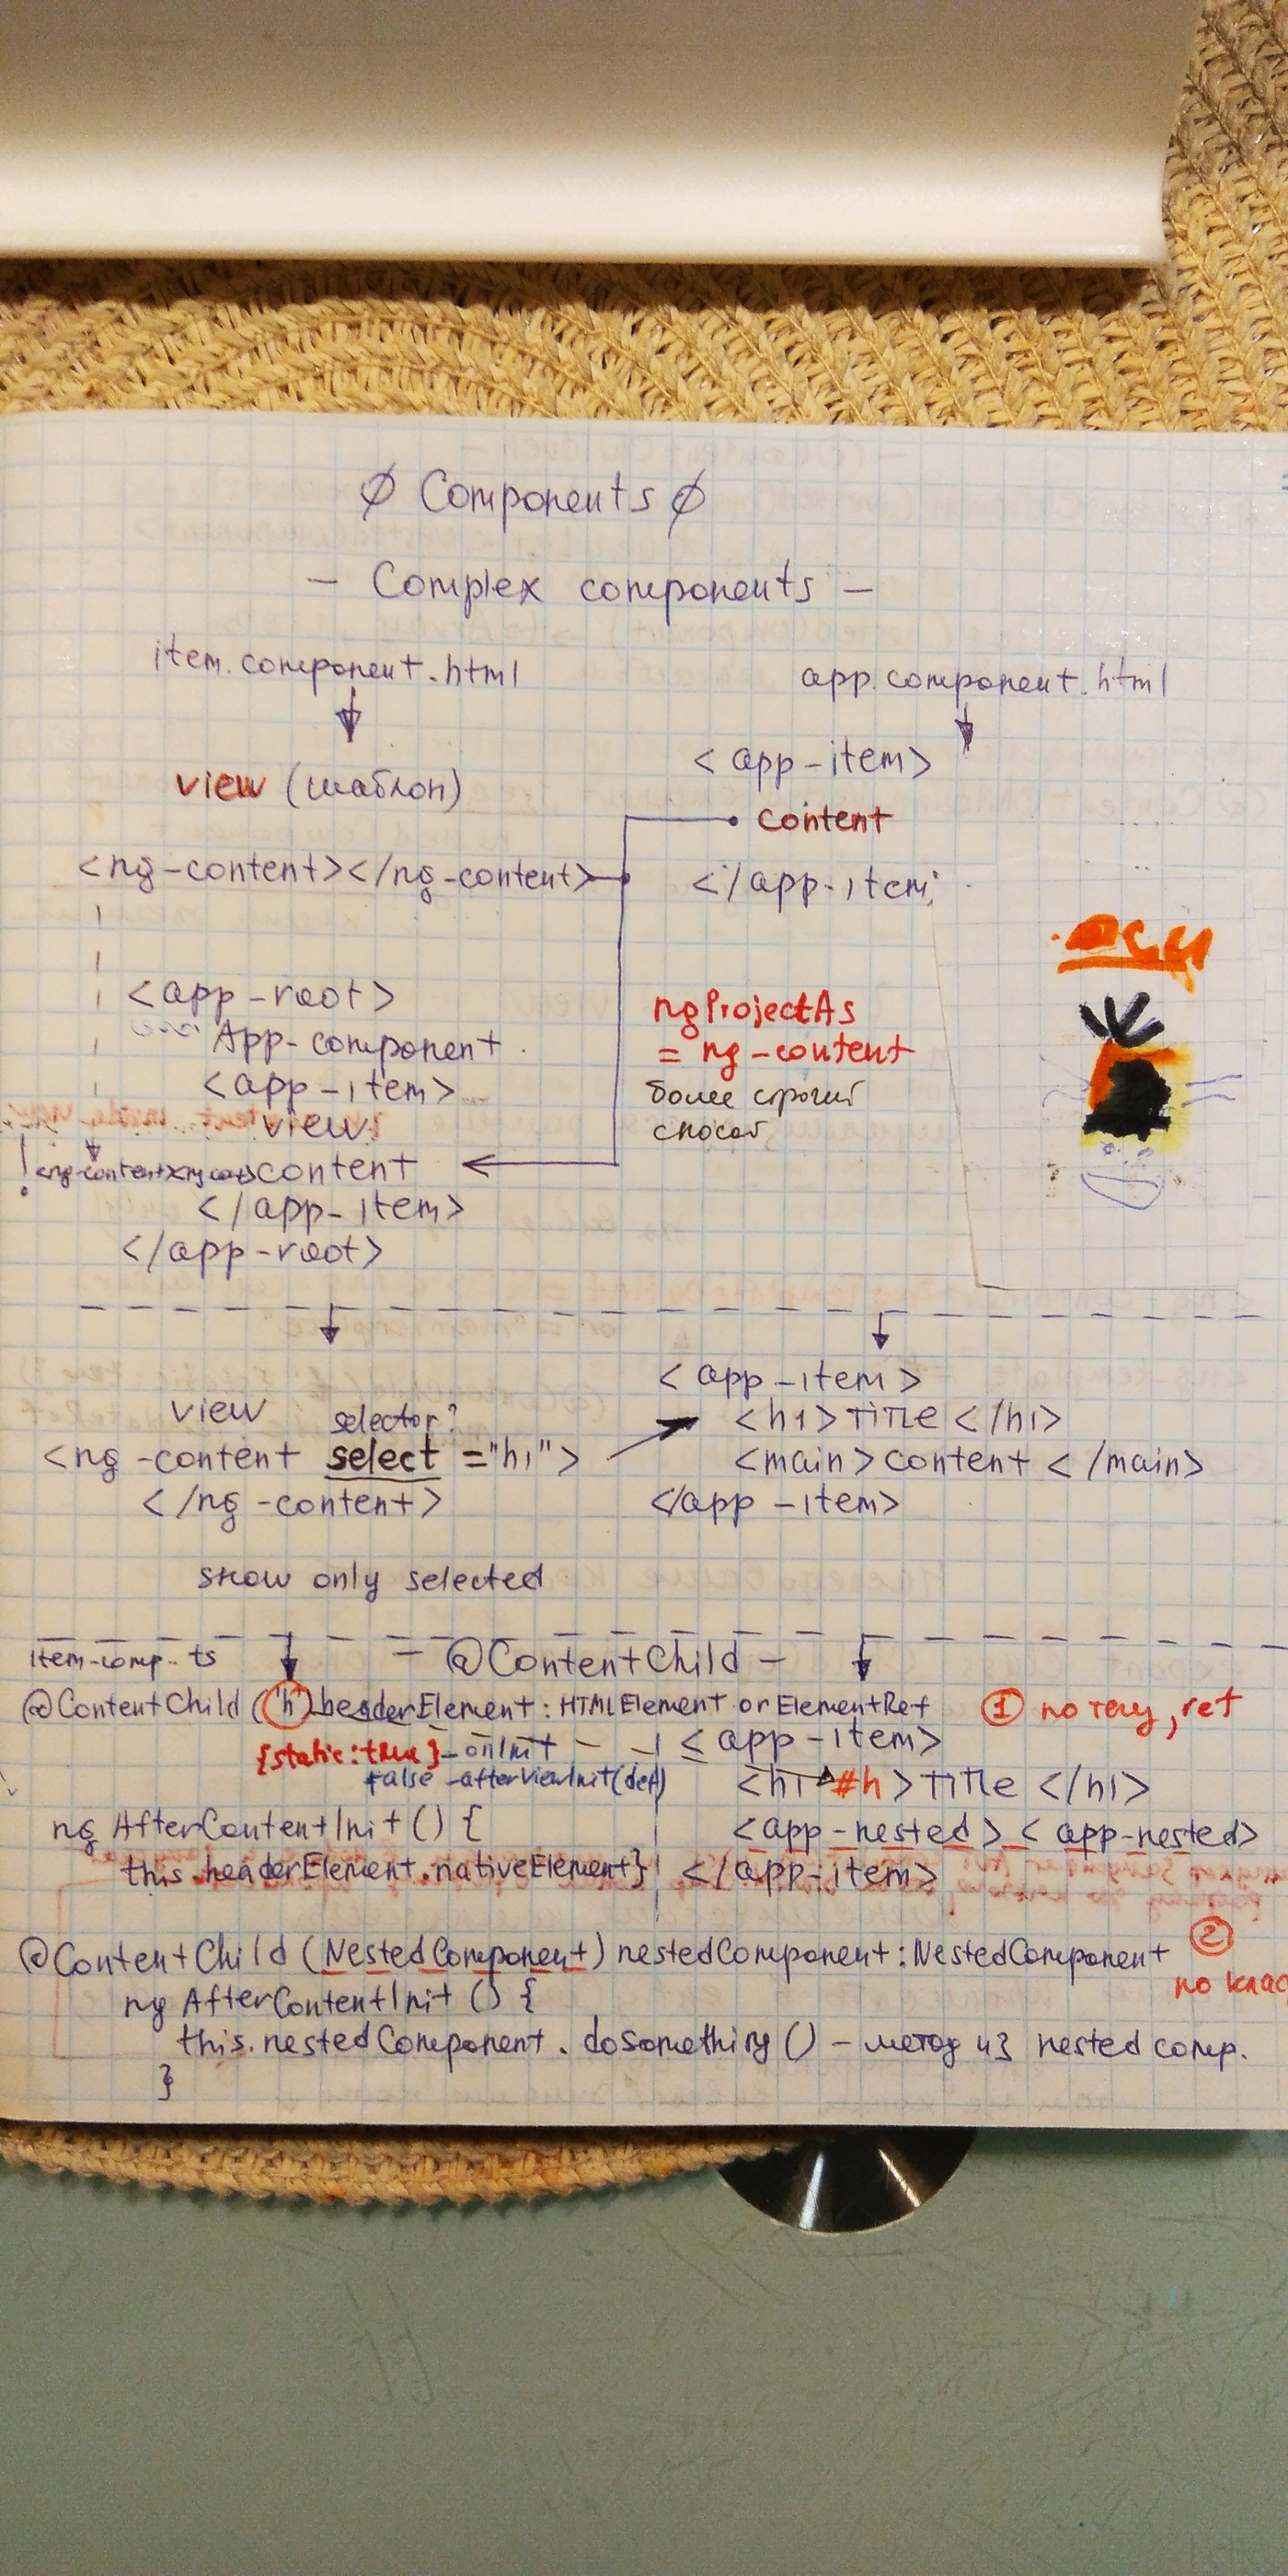 ∅ Components ∅
— Complex components —
item.component.html
view (шаблон)
<ng-content></ng-content>
app.component.html
<app-item>
content
</app-item
<app-root>
App-component
<app-item>
view
content
</app-item>
</app-root>
ngProjectAs
= ng-content
более строгий
способ
view
selector?
<ng-content select="h1">
</ng-content>
show only selected
<app-item>
<h1>TITLE</h1>
<main>content</main>
</app-item>
item-comp..ts
— @ContentChild —
@ContentChild('h') headerElement: HTMLElement or ElementRef
① по тегу, ref
{static:true} - onInit
false - afterViewInit(def)
ngAfterContentInit() {
this.headerElement.nativeElement}
<app-item>
<h1 #h>TITLE</h1>
<app-nested><app-nested>
</app-item>
@ContentChild(NestedComponent) nestedComponent: NestedComponent
②
по клас
ngAfterContentInit() {
this.nestedComponent.doSomething() - метод из nested comp.
}